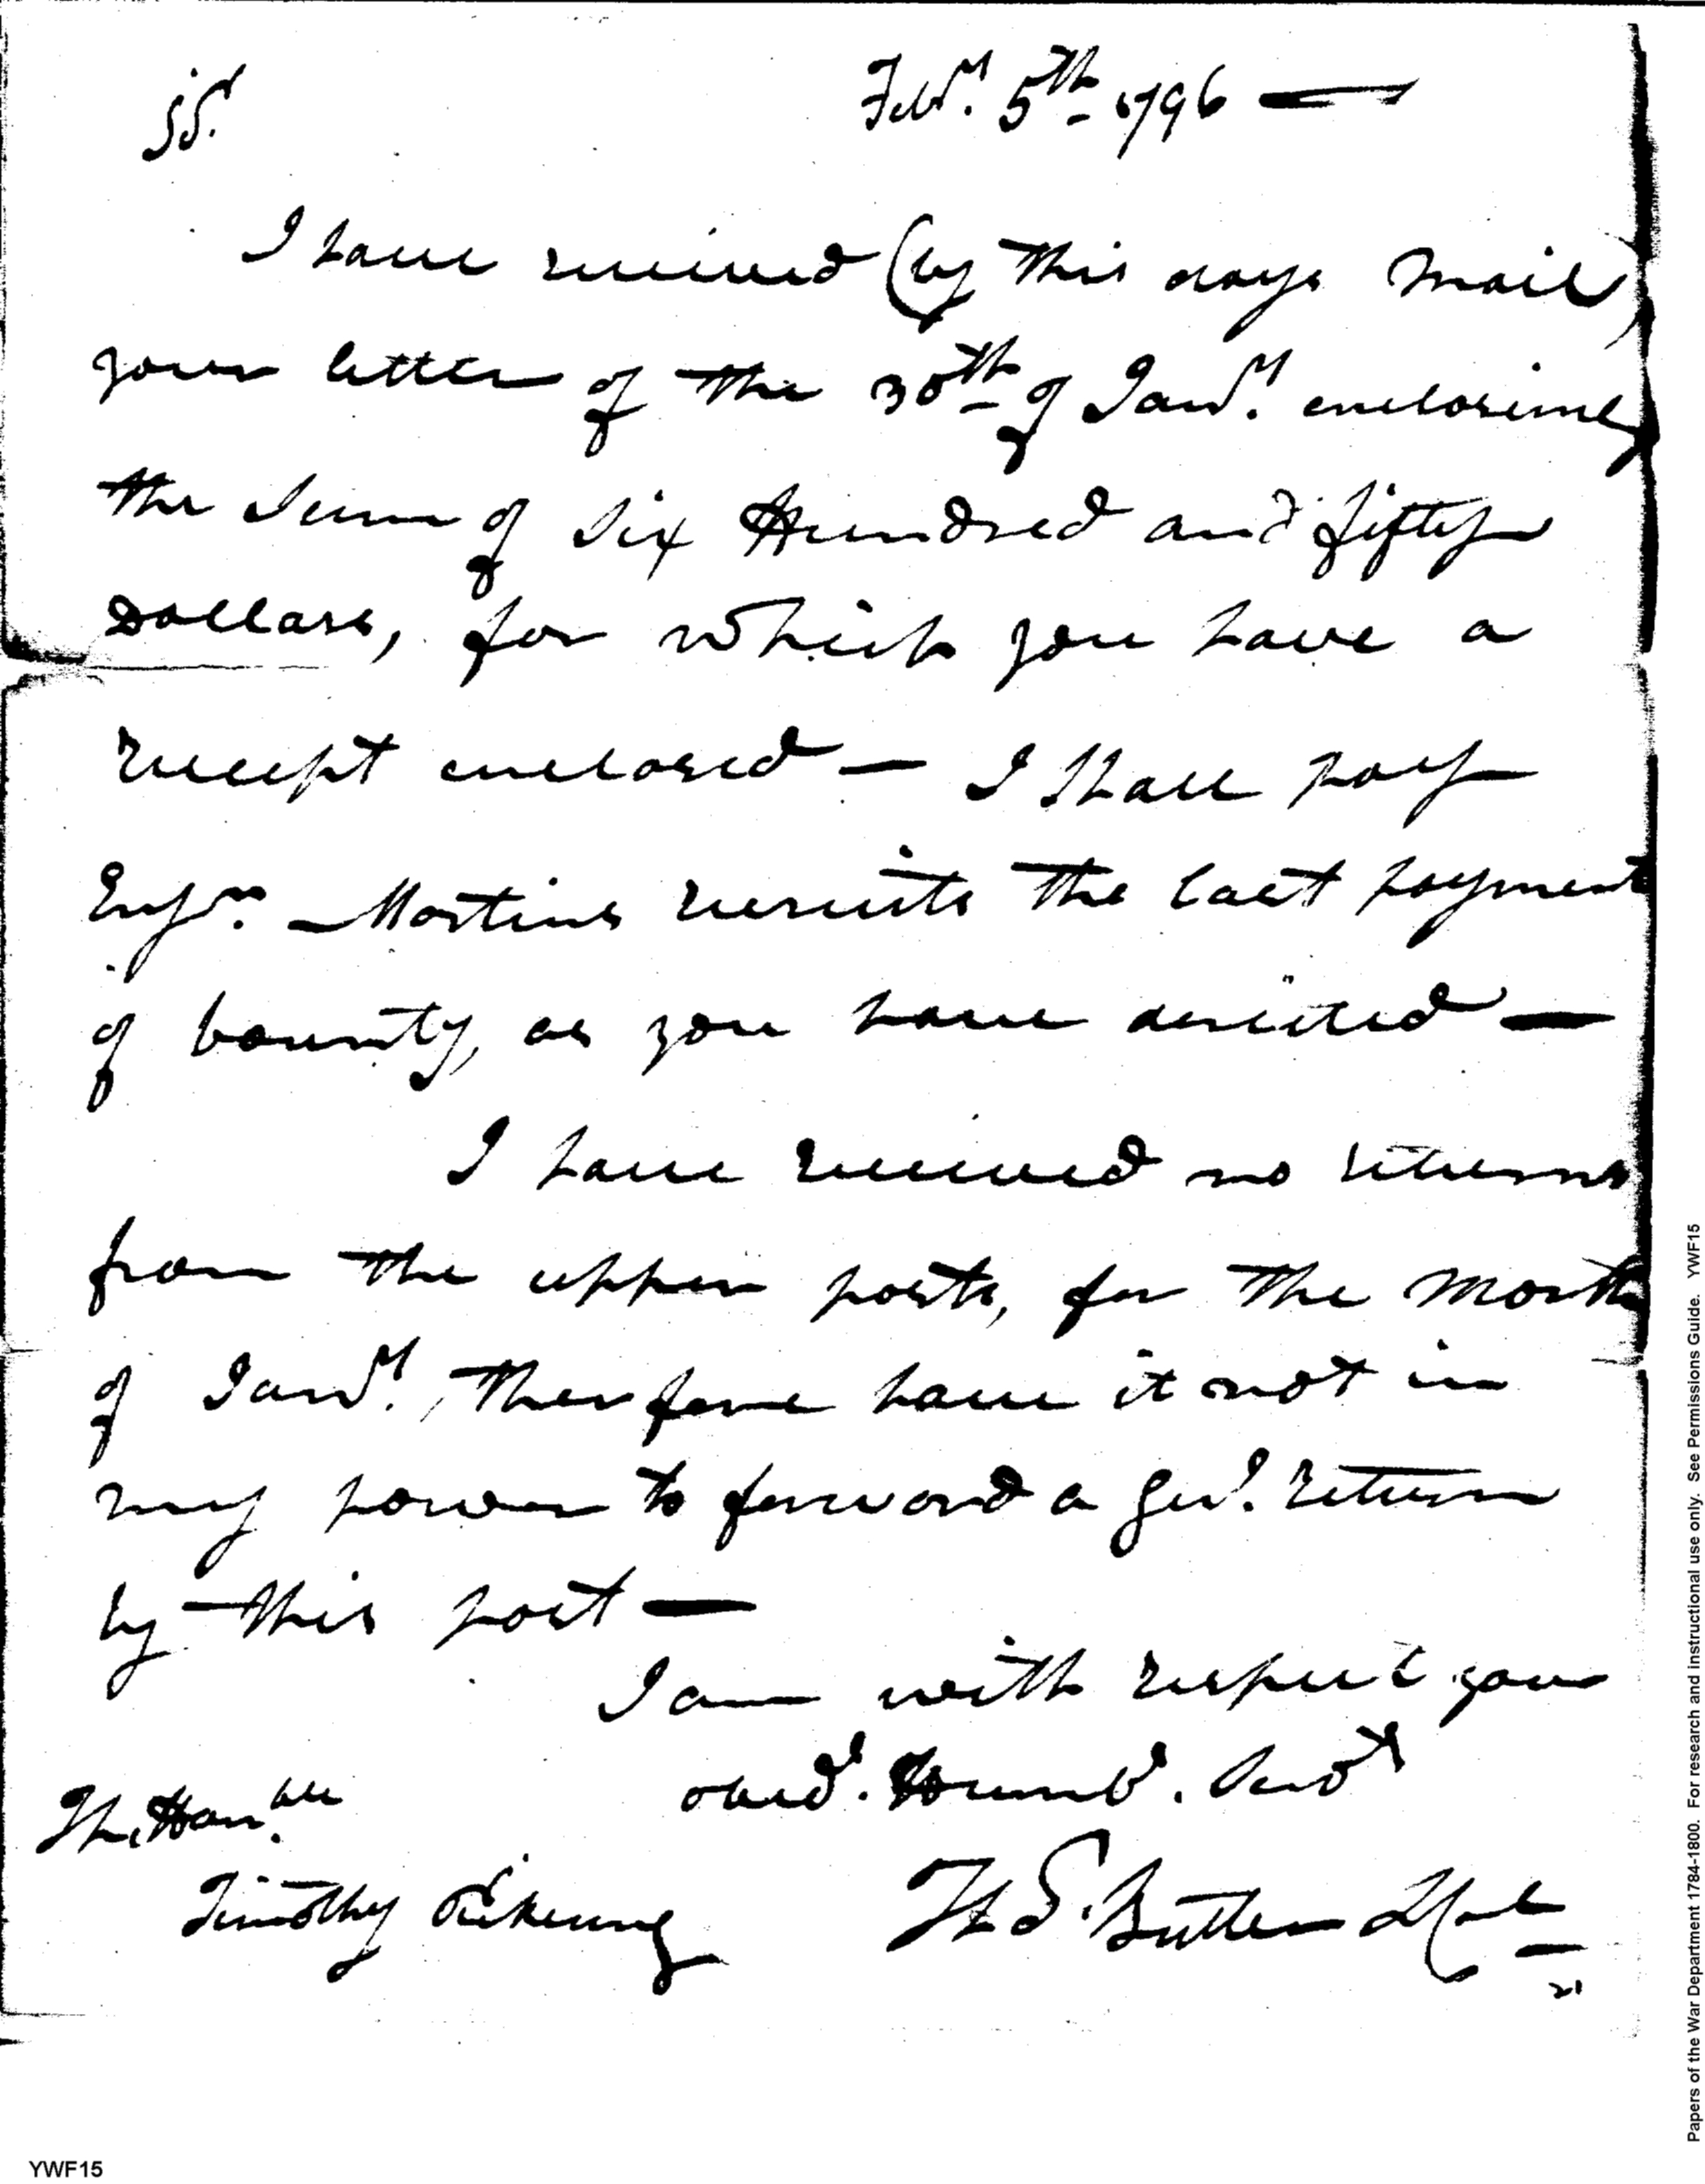 Feb.ry 5th 1796 —
Sir
I have received (by this days mail)
your letter of the 30th of Jany. enclosing
the sum of six Hundred and fifty
Dollars, for which you have a
receipt enclosed — I shall pay
Ensn. Martins recruits the last payment
of bounty, as you have directed —
I have received no returns
from the upper posts, for the month
of Jany., therefore have it not in
my power to forward a Genl. return
by this post —
I am with respect your
obed. Humbl. Servt
Th. Honble
Timothy Pickering
Th S. Butler
21
Papers of the War Department 1784-1800. For research and instructional use only. See Permissions Guide. YWF15
YWF15